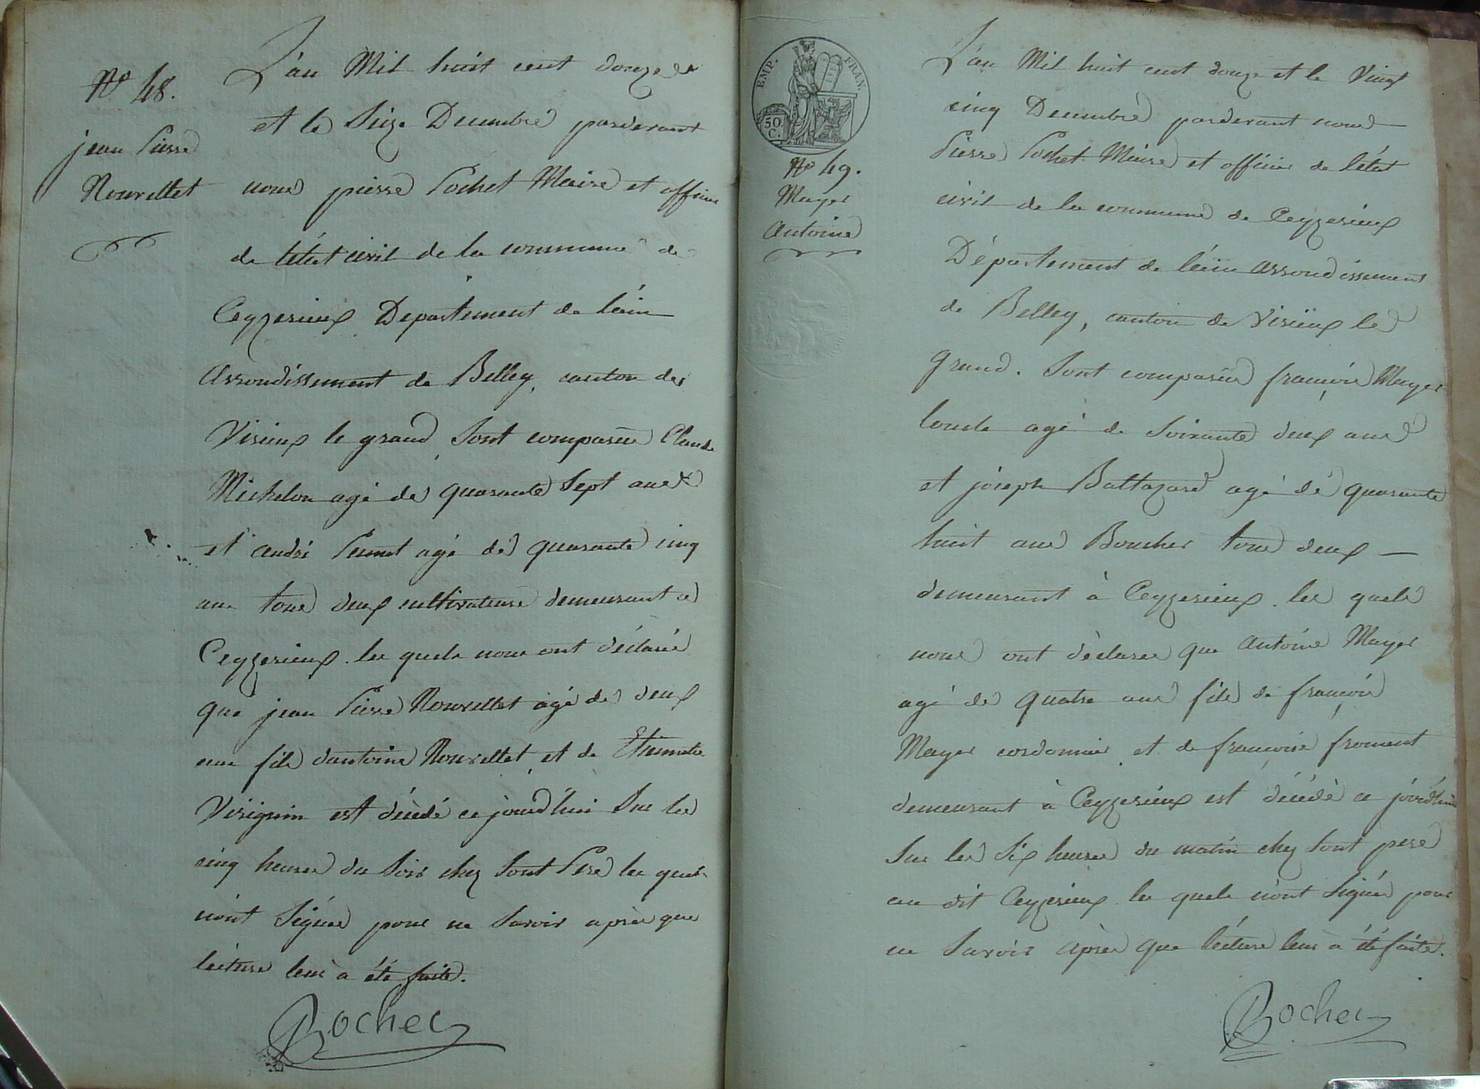 No 48.
jean Pierre
Nourellet
L'an Mil huit cent douze
et le Seize Decembre pardevant
nous pierre Pochet Maire et officier
de létat civil de la commune de
Ceyzerieux Departement de láin
Arrondissement de Belley, canton de
Virieux le grand, Sont comparus Claude
Michelon agé de quarante Sept ans
et andré agé de quarante cinq
ans tous deux cultivateurs demeurant a
Ceyzerieux. les quels nous ont déclarés
que jean Pierre Nourellet agé de deux
ans fils dantoine Nourellet et de Etiennette
Virignin est décédé ce jourd'hui Sur les
cinq heures du Soir chez Sont Pere les quels
n'ont Signés pour ne Savoir après que
lécture leur a été faite.
Rochet
EMP. FRAN.
50 C.
No 49.
Mayer
Antoine
L'an Mil huit cent douze et le Vingt
cinq Decembre pardevant nous
Pierre Pochet Maire et officier de létat
civil de la commune de Ceyzerieux
Département de láin arrondissement
de Belley, canton de Virieux le
grand. Sont comparus françois Mayer
oncle agé de Soixante deux ans
et joseph Baltazard agé de quarante
huit ans Boucher tous deux
demeurant à Ceyzerieux. les quels
nous ont déclarés que Antoine Mayer
agé de quatre ans fils de françois
Mayer cordonnier et de françoise froment
demeurant à Ceyzerieux est décédé ce jourd'hui
Sur les Six heures du matin chez Sont pere
au dit Ceyzerieux les quels n'ont Signés pour
ne Savoir après que lécture leur a été faite.
Rochet